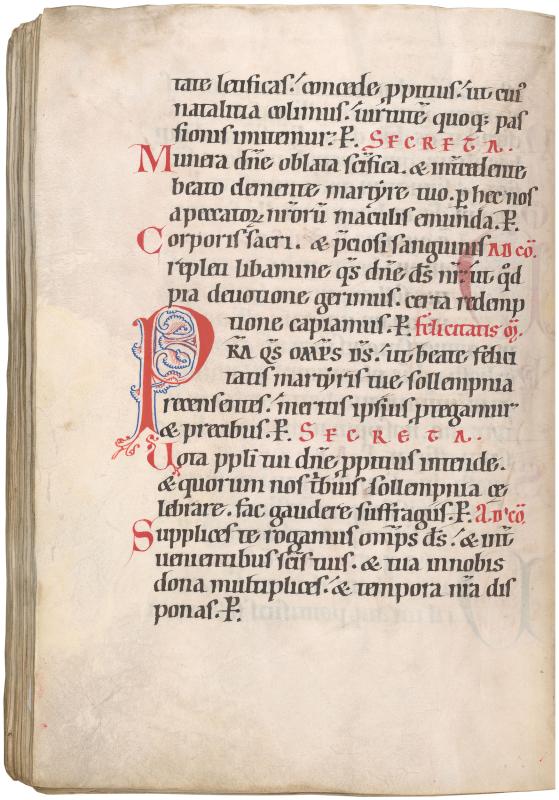 tate letificas. concede ꝓpitius. ut cui᷒
natalitia colimus. uirtutē quoq; pas
sionis imitemur. P̲. SECRETA.
Munera dñe oblata sc̄ifica. & int̄cedente
beato clemente martyre tuo. ꝑ hec nos
a peccatoꝝ nr̄orū maculis emunda. P̲.
Corporis sacri. & p̄ciosi sanguinis AD CŌ.
repleti libamine q̄s dñe dš nr̄. ut q̊d
pia deuotione gerimus. certa redemp
tione capiamus. P̲. felicitatis oꝝ̄.
PR̄A Q̄S OM̄PS D̄S. ut beate felici
tatis martyris tue sollempnia
recensentes. meritis ipsius ꝓtegamur
& precibus. P̲. SECRETA.
Uota ppl̄i tui dñe ꝓpitius intende.
& quorum nos t̄buis sollempnia ce
lebrare. fac gaudere suffragiis. P̲. AD CŌ
Supplices te rogamus om̄ps dš. & int̄
uenientibus sc̄is tuis. & tua in nobis
dona multiplices. & tempora nr̄a dis
ponas. P̲.